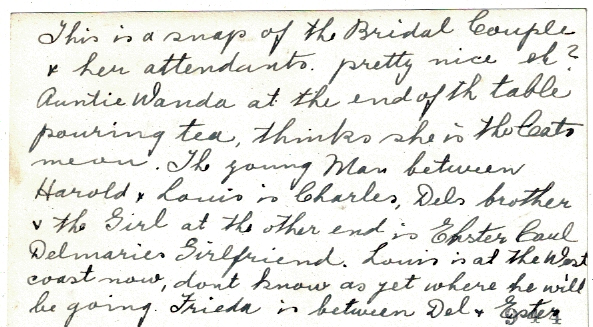 This is a snap of the Bridal Couple
& her attendants. pretty nice eh?
Auntie Wanda at the end of th table
pouring tea, thinks she is the Cats
meow. The young Man between
Harold & Louis is Charles, Dels brother
& the Girl at the other end is Ehster Caul
Delmaries Girlfriend. Louis is at the West
coast now, dont know as yet where he will
be going. Trieda is between Del & Ester
944